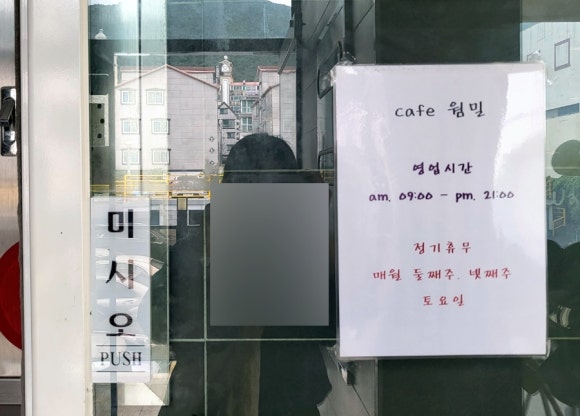 미
시
오
PUSH
cafe 웜밀
영업시간
am. 09:00 - pm. 21:00
정기휴무
매월 둘째주, 넷째주
토요일